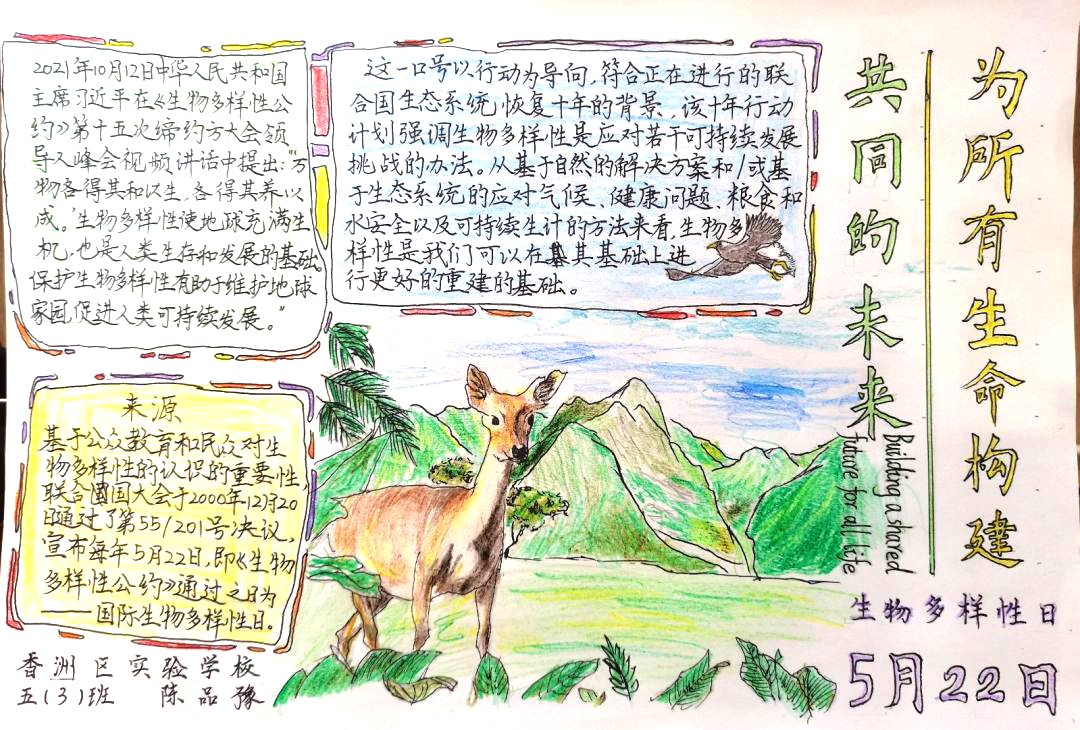 为所有生命构建
共同的未来
Building a shared
future for all life
生物多样性日
5月22日
2021年10月12日中华人民共和国
主席习近平在《生物多样性公
约》第十五次缔约方大会领
导人峰会视频讲话中提出:"万
物各得其和以生,各得其养以
成。'生物多样性使地球充满生
机,也是人类生存和发展的基础,
保护生物多样性有助于维护地球
家园,促进人类可持续发展。"
这一口号以行动为导向,符合正在进行的联
合国生态系统,恢复十年的背景,该十年行动
计划强调生物多样性是应对若干可持续发展
挑战的办法。从基于自然的解决方案和/或基
于生态系统的应对气候、健康问题、粮食和
水安全以及可持续生计的方法来看,生物多
样性是我们可以在其基础上进
行更好的重建的基础。
来源
基于公众教育和民众对生
物多样性的认识的重要性,
联合国大会于2000年12月20
日通过了第55/201号决议,
宣布每年5月22日,即《生物
多样性公约》通过之日为
——国际生物多样性日。
香洲区实验学校
五(3)班 陈品豫